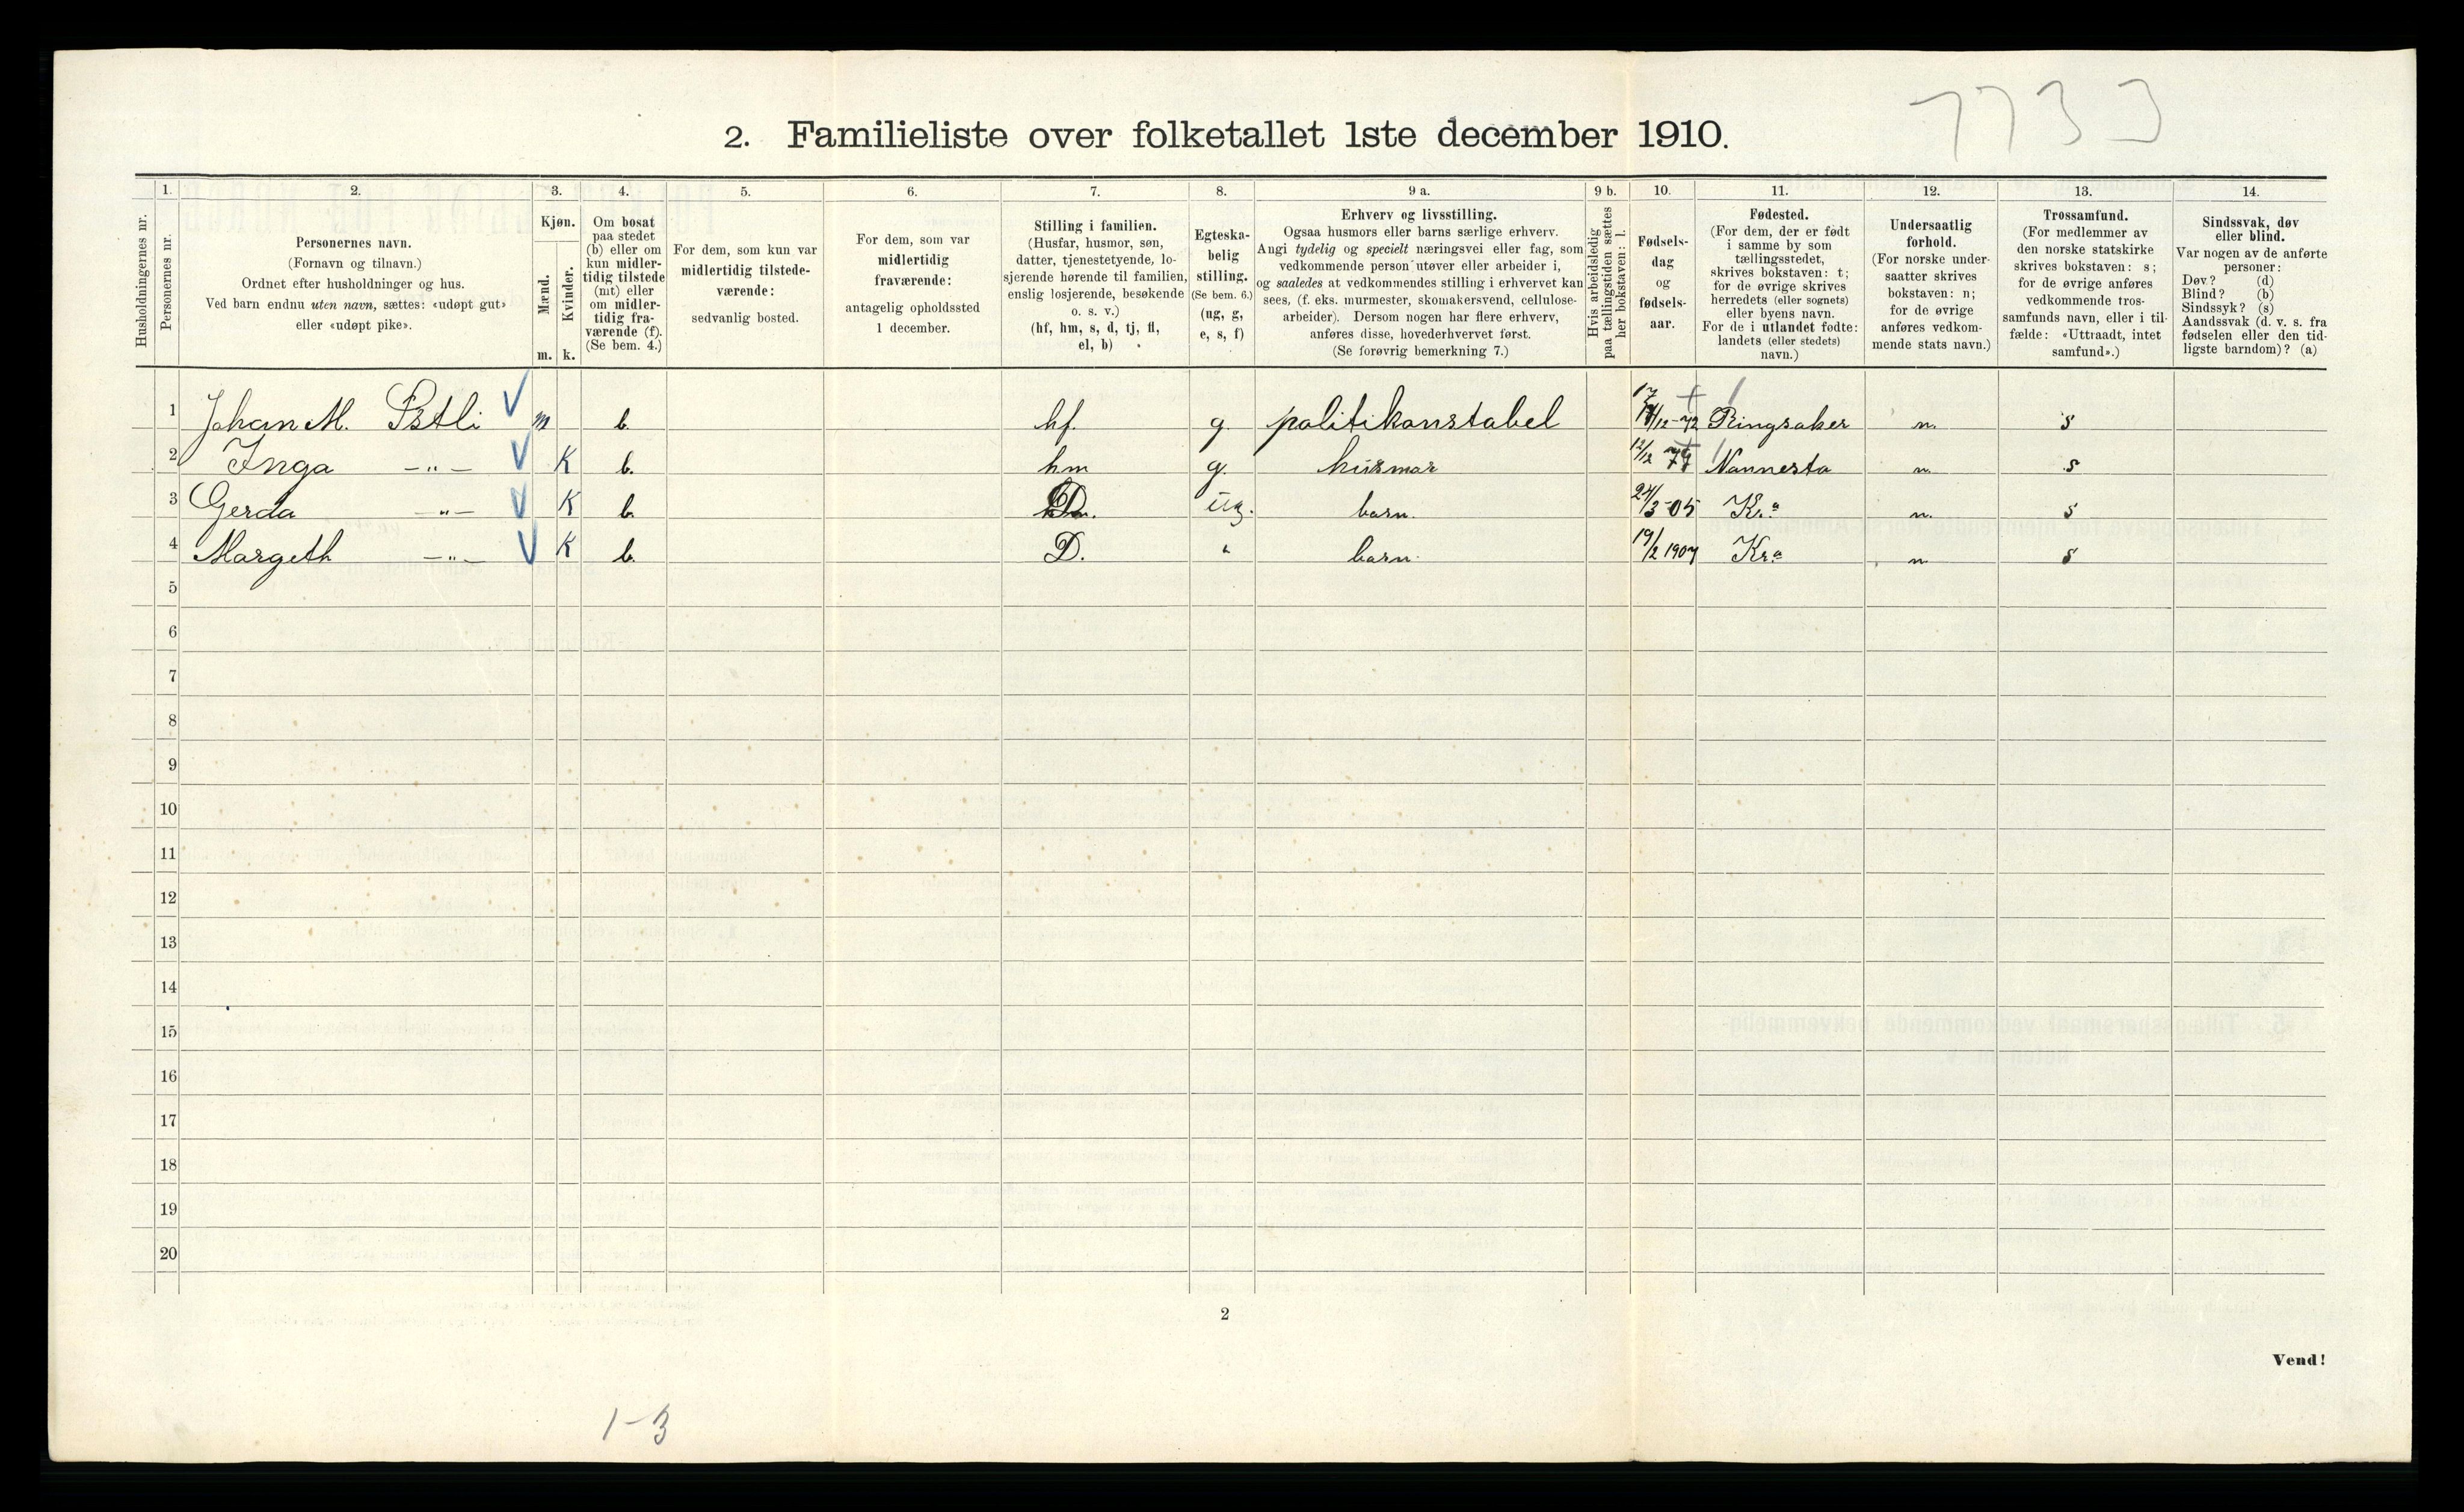 7733
2. Familieliste over folketallet 1ste december 1910.
1. 2. 3. 4. 5. 6. 7. 8. 9 a. 9 b. 10. 11. 12. 13. 14.
Husholdningernes nr.
Personernes nr.
Personernes navn.
(Fornavn og tilnavn.)
Ordnet efter husholdninger og hus.
Ved barn endnu uten navn, sættes: «udøpt gut»
eller «udøpt pike».
Kjøn.
Mænd.
Kvinder.
m. k.
Om bosat
paa stedet
(b) eller om
kun midler-
tidig tilstede
(mt) eller
om midler-
tidig fra-
værende (f).
(Se bem. 4.)
For dem, som kun var
midlertidig tilstede-
værende:
sedvanlig bosted.
For dem, som var
midlertidig
fraværende:
antagelig opholdssted
1 december.
Stilling i familien.
(Husfar, husmor, søn,
datter, tjenestetyende, lo-
sjerende hørende til familien,
enslig losjerende, besøkende
o. s. v.)
(hf, hm, s, d, tj, fl,
el, b)
Egteska-
belig
stilling.
(Se bem. 6.)
(ug, g,
e, s, f)
Erhverv og livsstilling.
Ogsaa husmors eller barns særlige erhverv.
Angi tydelig og specielt næringsvei eller fag, som
vedkommende person utøver eller arbeider i,
og saaledes at vedkommendes stilling i erhvervet kan
sees, (f. eks. murmester, skomakersvend, cellulose-
arbeider). Dersom nogen har flere erhverv,
anføres disse, hovederhvervet først.
(Se forøvrig bemerkning 7.)
Hvis arbeidsledig
paa tællingstiden sættes
her bokstaven: l.
Fødsels-
dag
og
fødsels-
aar.
Fødested.
(For dem, der er født
i samme by som
tællingsstedet,
skrives bokstaven: t;
for de øvrige skrives
herredets (eller sognets)
eller byens navn.
For de i utlandet fødte:
landets (eller stedets)
navn.)
Undersaatlig
forhold.
(For norske under-
saatter skrives
bokstaven: n;
for de øvrige
anføres vedkom-
mende stats navn.)
Trossamfund.
(For medlemmer av
den norske statskirke
skrives bokstaven: s;
for de øvrige anføres
vedkommende tros-
samfunds navn, eller i til-
fælde: «Uttraadt, intet
samfund».)
Sindssvak, døv
eller blind.
Var nogen av de anførte
personer:
Døv? (d)
Blind? (b)
Sindssyk? (s)
Aandssvak (d. v. s. fra
fødselen eller den tid-
ligste barndom)? (a)
1 Johan M. m b. hf. g politikonstabel /12-72 Ringsaker n. s
2 Inga —"— K b. hm g. husmor 12/12 Nannesta n. s
3 Gerda —"— K b. D. ug. barn. 24/3-05 Kr.a n. s
4 Margeth —"— K b. D. " barn. 19/2 1907 Kr.a n. s
5
6
7
8
9
10
11
12
13
14
15
16
17
18
19
20
2
Vend!
1-3